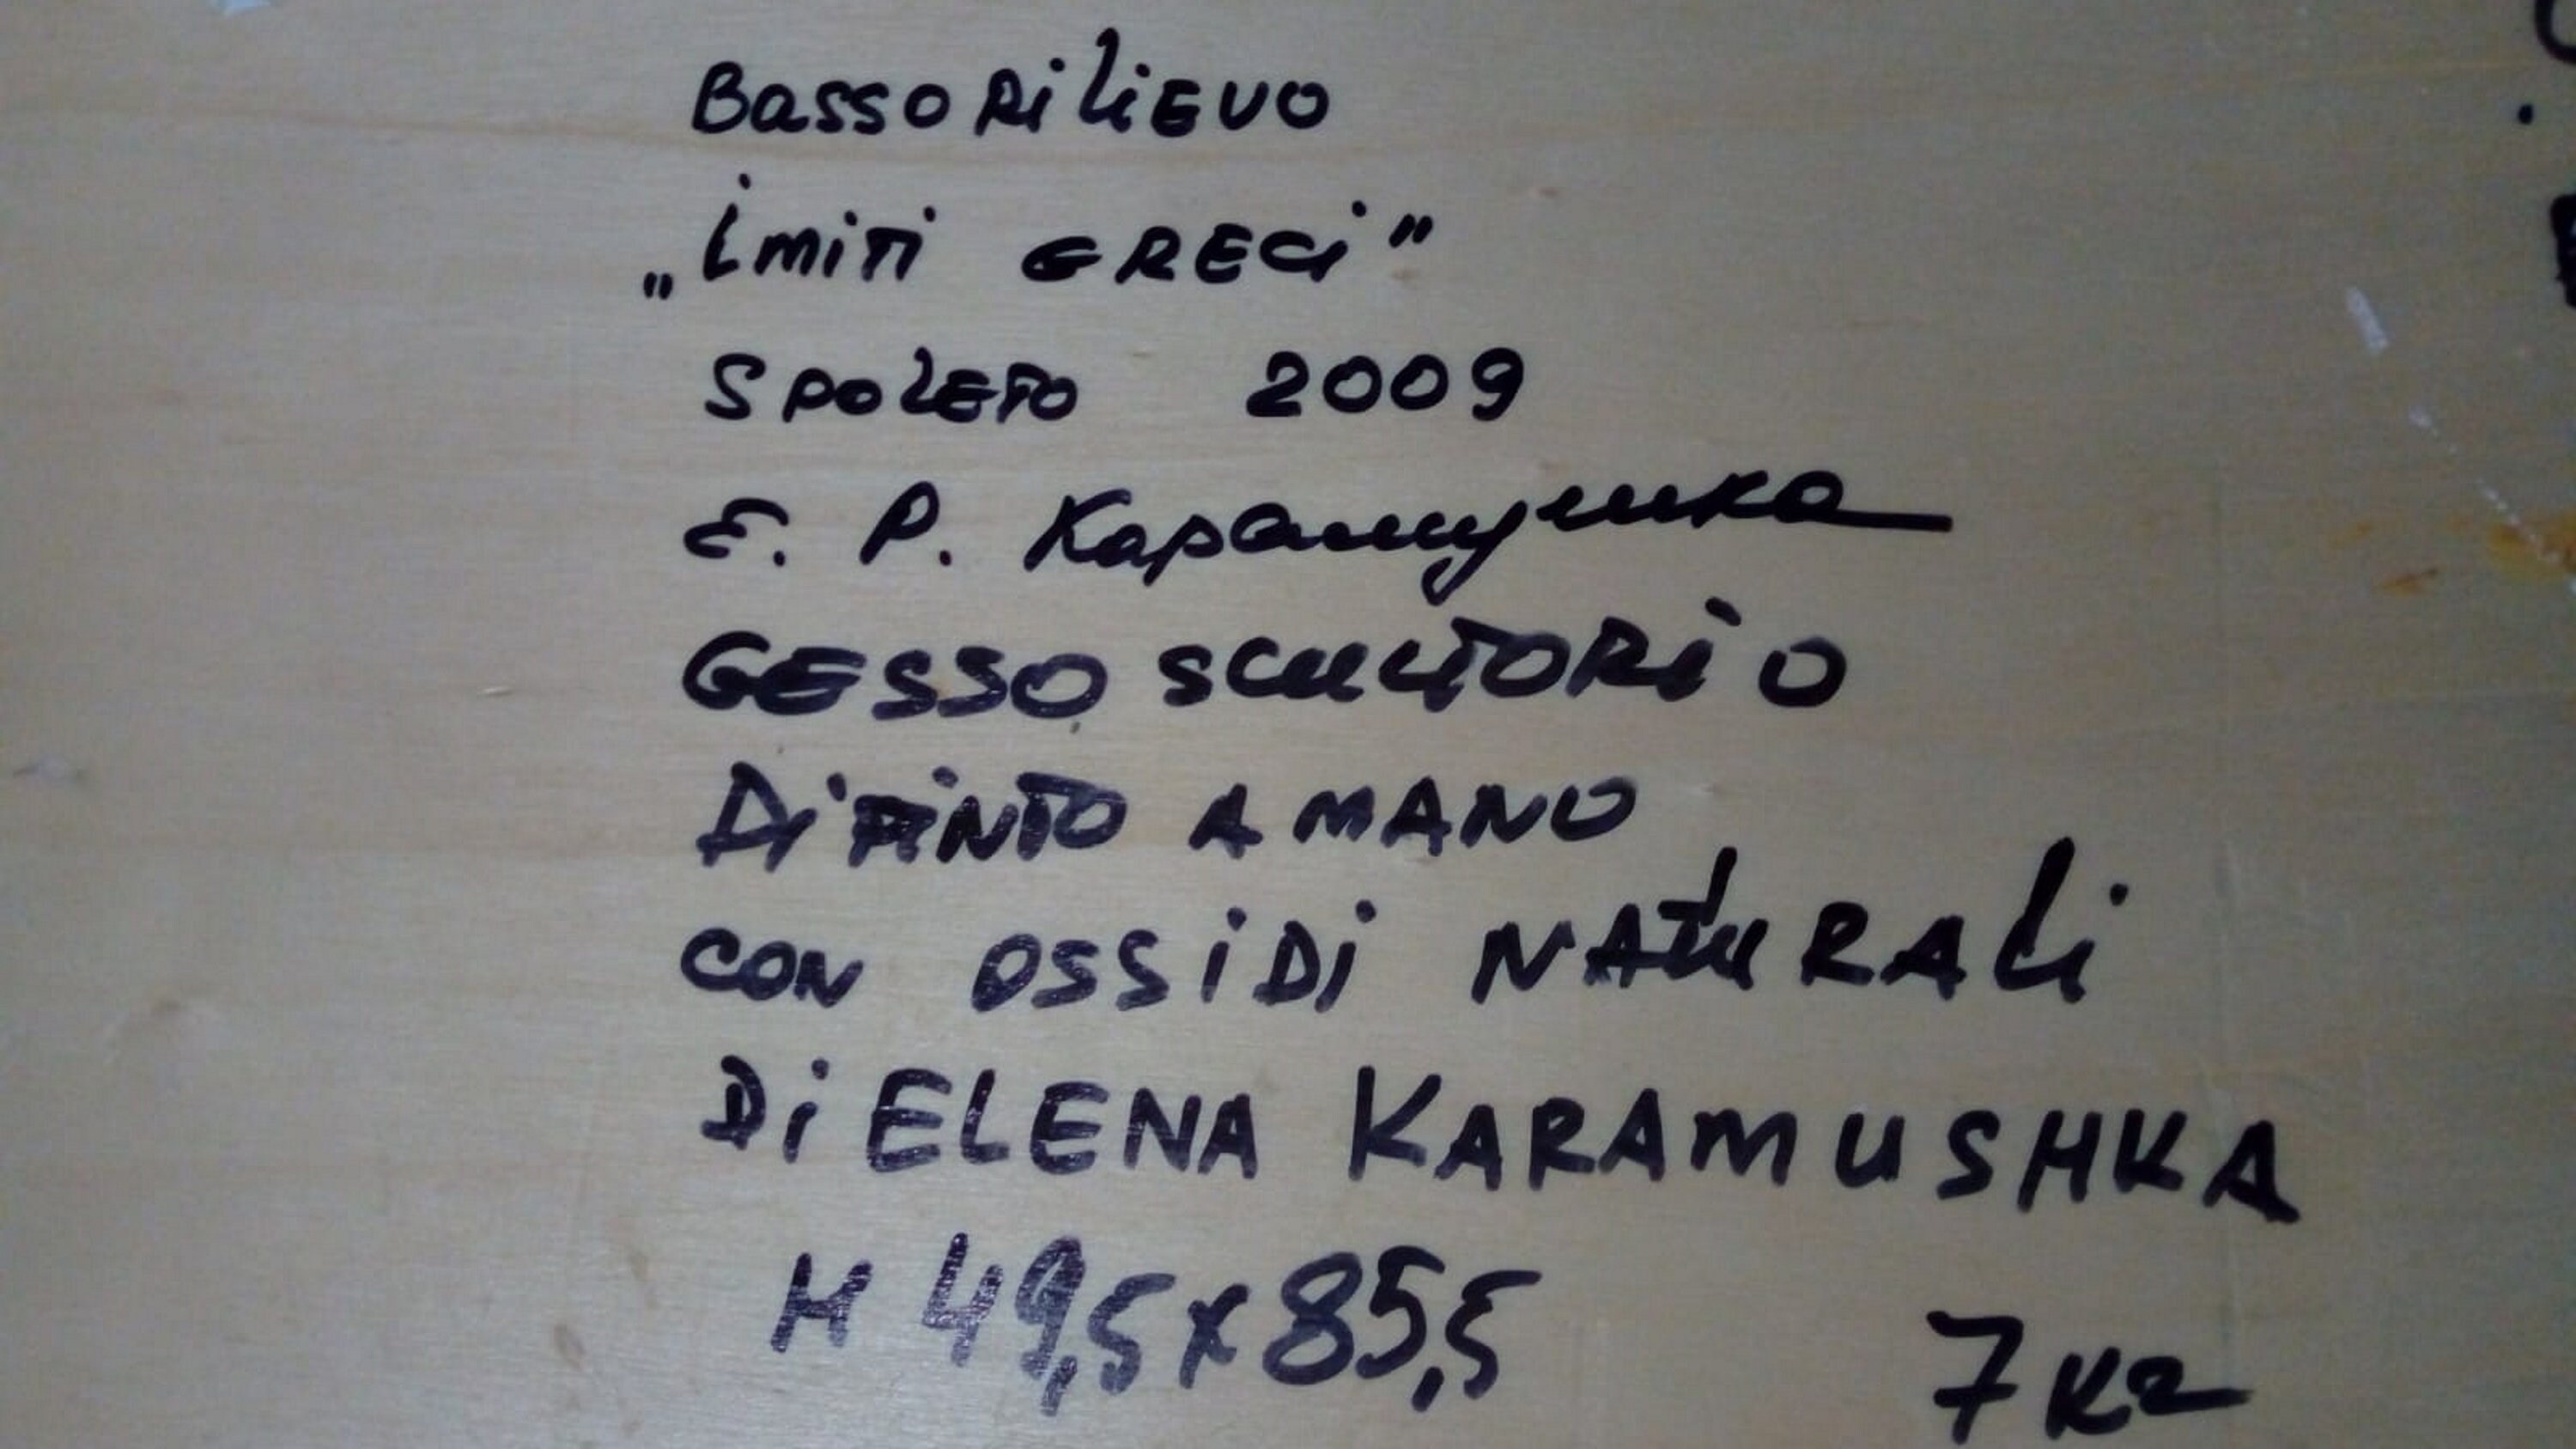 Bassorilievo
„I miti GRECi”
SPOLETO 2009
E. P. Карамушка
GESSO SCULTORIO
DiPiNTO A MANO
CON OSSiDi NATURALi
Di ELENA KARAMUSHKA
H 49,5 x 85,5
7 кг